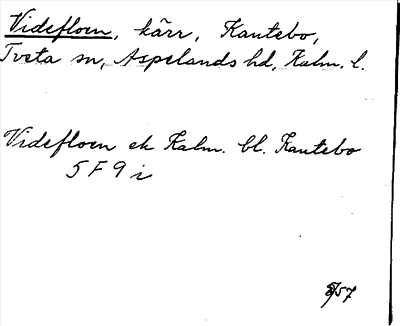 Videfloen, kärr, Kantebo,
Tveta sn, Aspelands hd, Kalm. l.
Videfloen ek Kalm. bl. Kantebo
5 F 9 i
/57